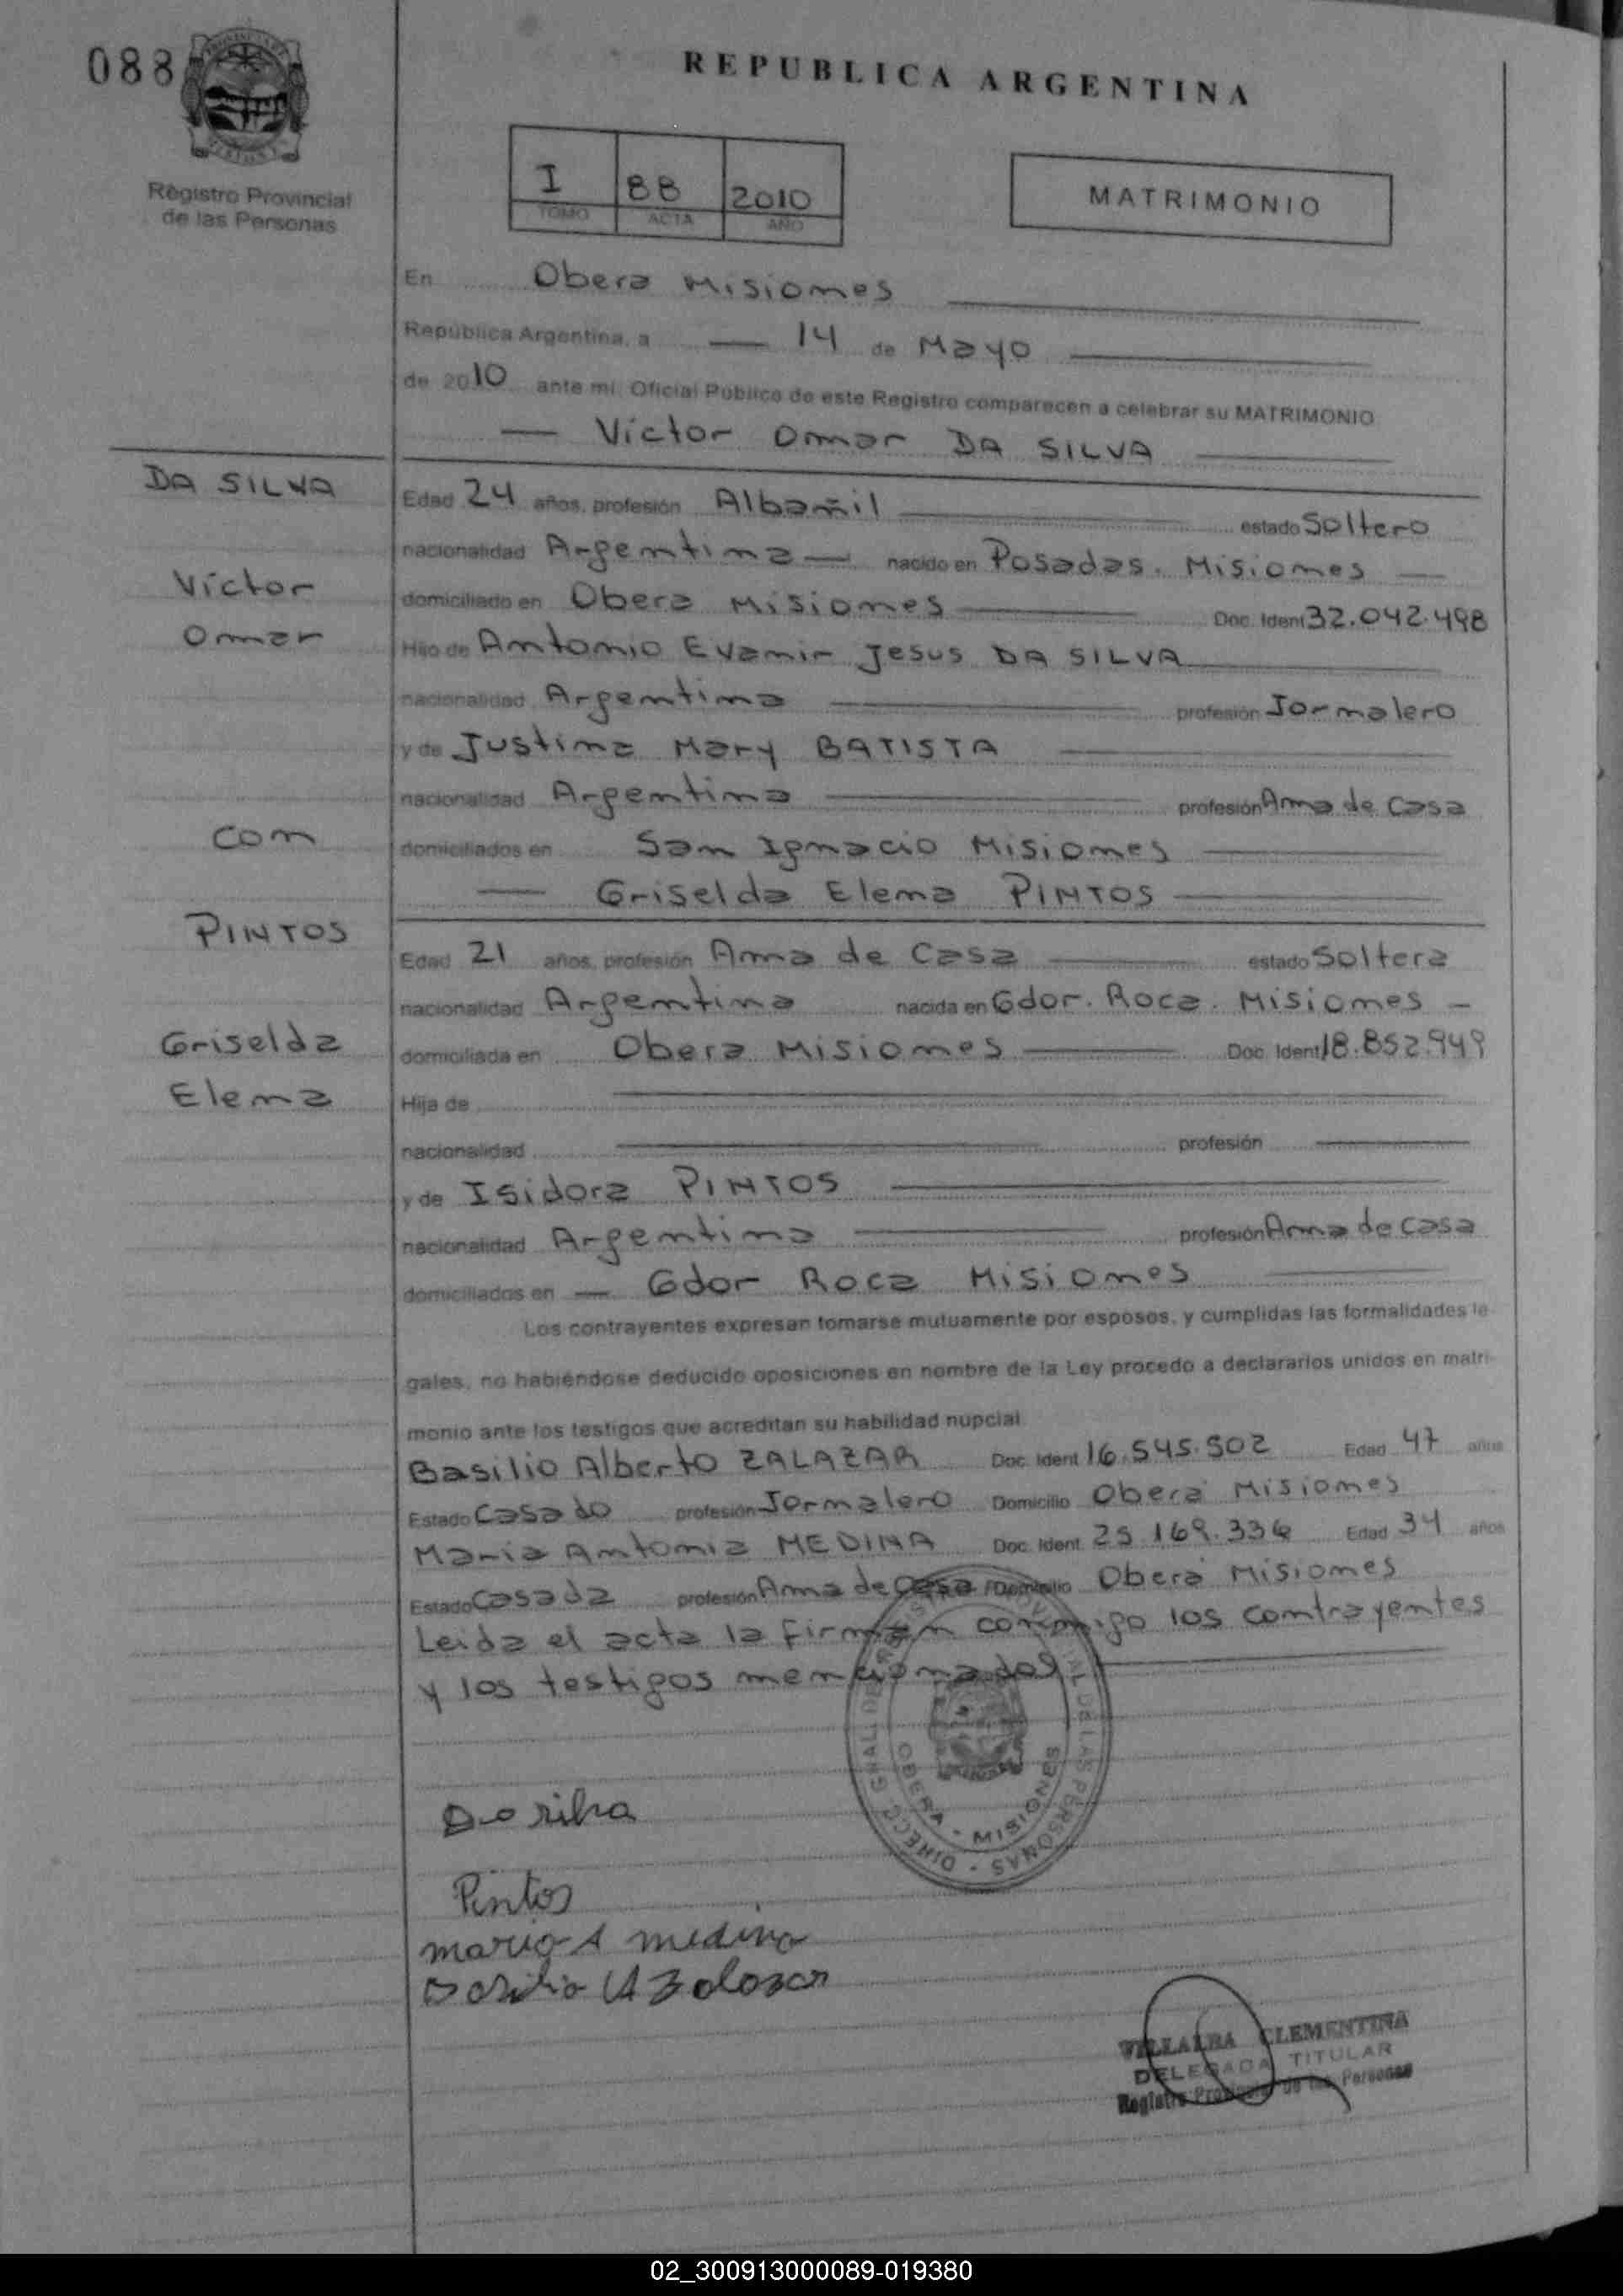 088
REPUBLICA ARGENTINA
Registro Provincial
de las Personas
I 88 2010
TOMO ACTA AÑO
MATRIMONIO
En Obera Misiones
República Argentina, a 14 de Mayo
de 2010 ante mí, Oficial Público de este Registro comparecen a celebrar su MATRIMONIO
Víctor Omar DA SILVA
DA SILVA
Víctor
Omar
con
PINTOS
Griselda
Elena
Edad 24 años, profesión Albañil estado Soltero
nacionalidad Argentina nacido en Posadas. Misiones
domiciliado en Obera Misiones Doc. Ident 32.042.498
Hijo de Antonio Evanir Jesus DA SILVA
nacionalidad Argentina profesión Jornalero
y de Justina Mary BATISTA
nacionalidad Argentina profesión Ama de Casa
domiciliados en San Ignacio Misiones
Griselda Elena PINTOS
Edad 21 años, profesión Ama de Casa estado Soltera
nacionalidad Argentina nacida en Gdor. Roca. Misiones
domiciliada en Obera Misiones Doc. Ident 18.852.949
Hija de
nacionalidad profesión
y de Isidora PINTOS
nacionalidad Argentina profesión Ama de casa
domiciliados en Gdor Roca Misiones
Los contrayentes expresan tomarse mutuamente por esposos, y cumplidas las formalidades le-
gales, no habiéndose deducido oposiciones en nombre de la Ley procedo a declararlos unidos en matri-
monio ante los testigos que acreditan su habilidad nupcial
Basilio Alberto ZALAZAR Doc. Ident. 16.545.502 Edad 47 años
Estado Casado profesión Jornalero Domicilio Oberá Misiones
María Antonia MEDINA Doc. Ident. 25.169.336 Edad 34 años
Estado Casada profesión Ama de Casa Domicilio Oberá Misiones
Leida el acta la firman conmigo los contrayentes
y los testigos mencionados
DIRECC. GRAL. DEL REGISTRO PROVINCIAL DE LAS PERSONAS
OBERA - MISIONES
Da silva
Pintos
maria A medina
Basilio A Zalazar
VILLALBA CLEMENTINA
DELEGADA TITULAR
Registro Provincial de las Personas
02_300913000089-019380